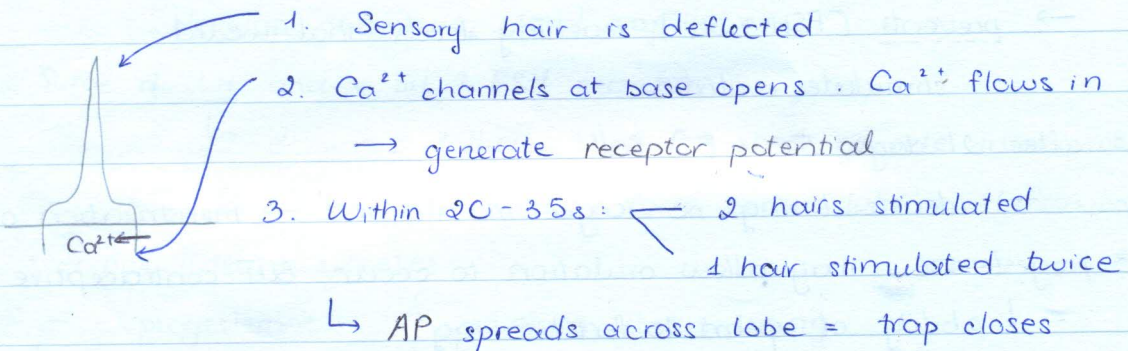 1. Sensory hair is deflected
2. Ca²⁺ channels at base opens. Ca²⁺ flows in
→ generate receptor potential
3. Within 20-35s: 2 hairs stimulated
1 hair stimulated twice
↳ AP spreads across lobe = trap closes
Ca²⁺